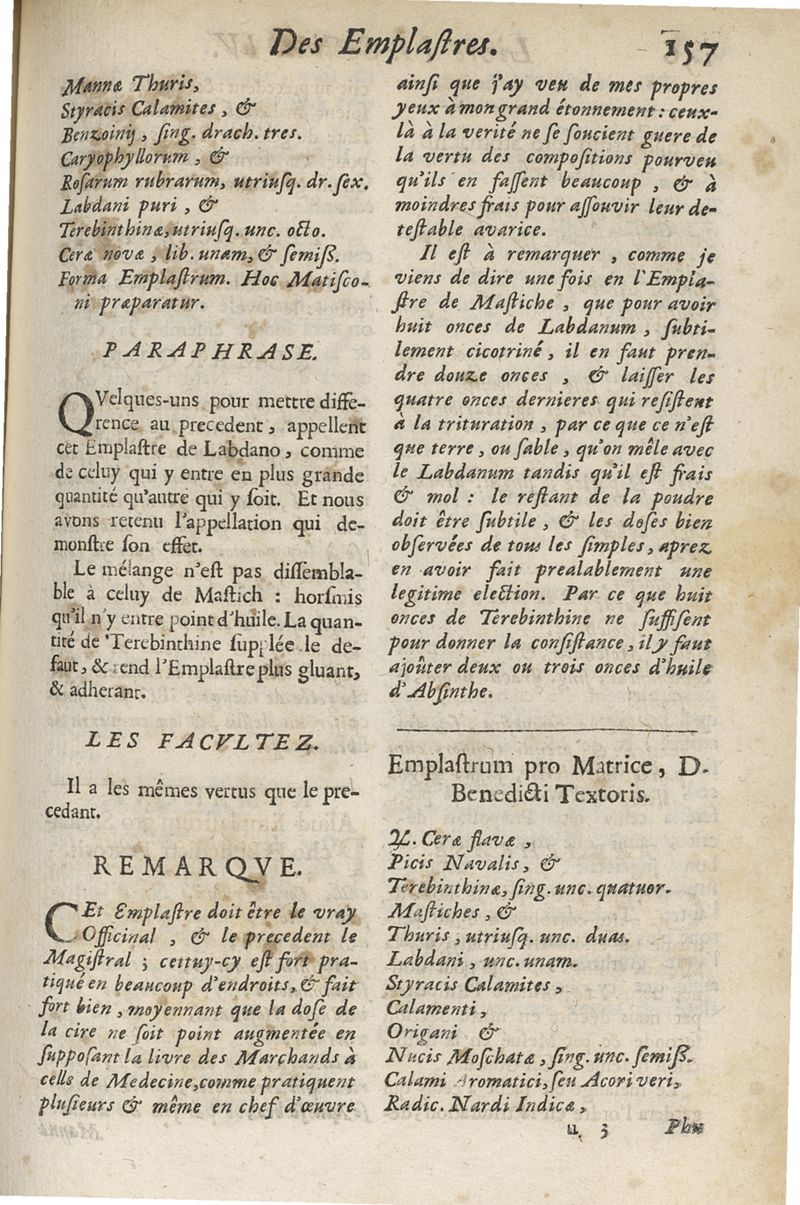 Des Emplaſtres. 157
Mannæ Thuris,
Styracis Calamites, &
Benzoinij, ſing. drach. tres.
Caryophyllorum, &
Roſarum rubrarum, utriuſq. dr. ſex.
Labdani puri, &
Terebinthinæ, utriuſq. unc. octo.
Ceræ novæ, lib. unam, & ſemiß.
Forma Emplaſtrum. Hoc Matiſco-
ni præparatur.
PARAPHRASE.
QVelques-uns pour mettre diffe-
rence au precedent, appellent
cet Emplaſtre de Labdano, comme
de celuy qui y entre en plus grande
quantité qu'autre qui y ſoit. Et nous
avons retenu l'appellation qui de-
monſtre ſon effet.
Le mélange n'eſt pas diſſembla-
ble à celuy de Maſtich : horſmis
qu'il n'y entre point d'huile. La quan-
tité de Terebinthine ſupplée le de-
faut, & rend l'Emplaſtre plus gluant,
& adherant.
LES FACVLTEZ.
Il a les mêmes vertus que le pre-
cedant.
REMARQVE.
CEt Emplaſtre doit être le vray
Officinal, & le precedent le
Magiſtral ; cettuy-cy eſt fort pra-
tiqué en beaucoup d'endroits, & fait
fort bien, moyennant que la doſe de
la cire ne ſoit point augmentée en
ſuppoſant la livre des Marchands à
celle de Medecine, comme pratiquent
pluſieurs & même en chef d'œuvre
ainſi que j'ay veu de mes propres
yeux à mon grand étonnement : ceux-
là à la verité ne ſe ſoucient guere de
la vertu des compoſitions pourveu
qu'ils en faſſent beaucoup, & à
moindres frais pour aſſouvir leur de-
teſtable avarice.
Il eſt à remarquer, comme je
viens de dire une fois en l'Empla-
ſtre de Maſtiche, que pour avoir
huit onces de Labdanum, ſubti-
lement cicotriné, il en faut pren-
dre douze onces, & laiſſer les
quatre onces dernieres qui reſiſtent
à la trituration, par ce que ce n'eſt
que terre, ou ſable, qu'on mêle avec
le Labdanum tandis qu'il eſt frais
& mol : le reſtant de la poudre
doit être ſubtile, & les doſes bien
obſervées de tous les ſimples, aprez
en avoir fait prealablement une
legitime election. Par ce que huit
onces de Terebinthine ne ſuffiſent
pour donner la conſiſtance, il y faut
ajoûter deux ou trois onces d'huile
d'Abſinthe.
Emplaſtrum pro Matrice, D.
Benedicti Textoris.
℞. Ceræ flavæ,
Picis Navalis, &
Terebinthinæ, ſing. unc. quatuor.
Maſtiches, &
Thuris, utriuſq. unc. duas.
Labdani, unc. unam.
Styracis Calamites,
Calamenti,
Origani &
Nucis Moſchatæ, ſing. unc. ſemiß.
Calami Aromatici, ſeu Acori veri,
Radic. Nardi Indicæ,
u 3 Phu